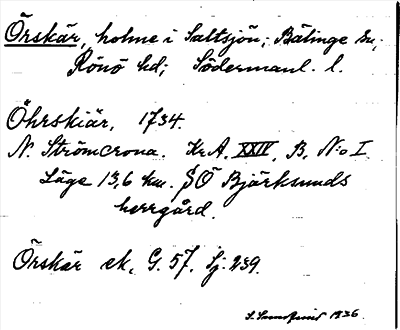 Örskär, holme i Saltsjön; Bälinge sn;
Rönö hd; Södermanl. l.
Öhrskiär, 1734.
N. Strömcrona. Kr.A. XXIV, B, N:o I
Läge 13,6 km. SÖ Björksunds
herrgård.
Örskär ek, G. 57, Sj. 239.
1936